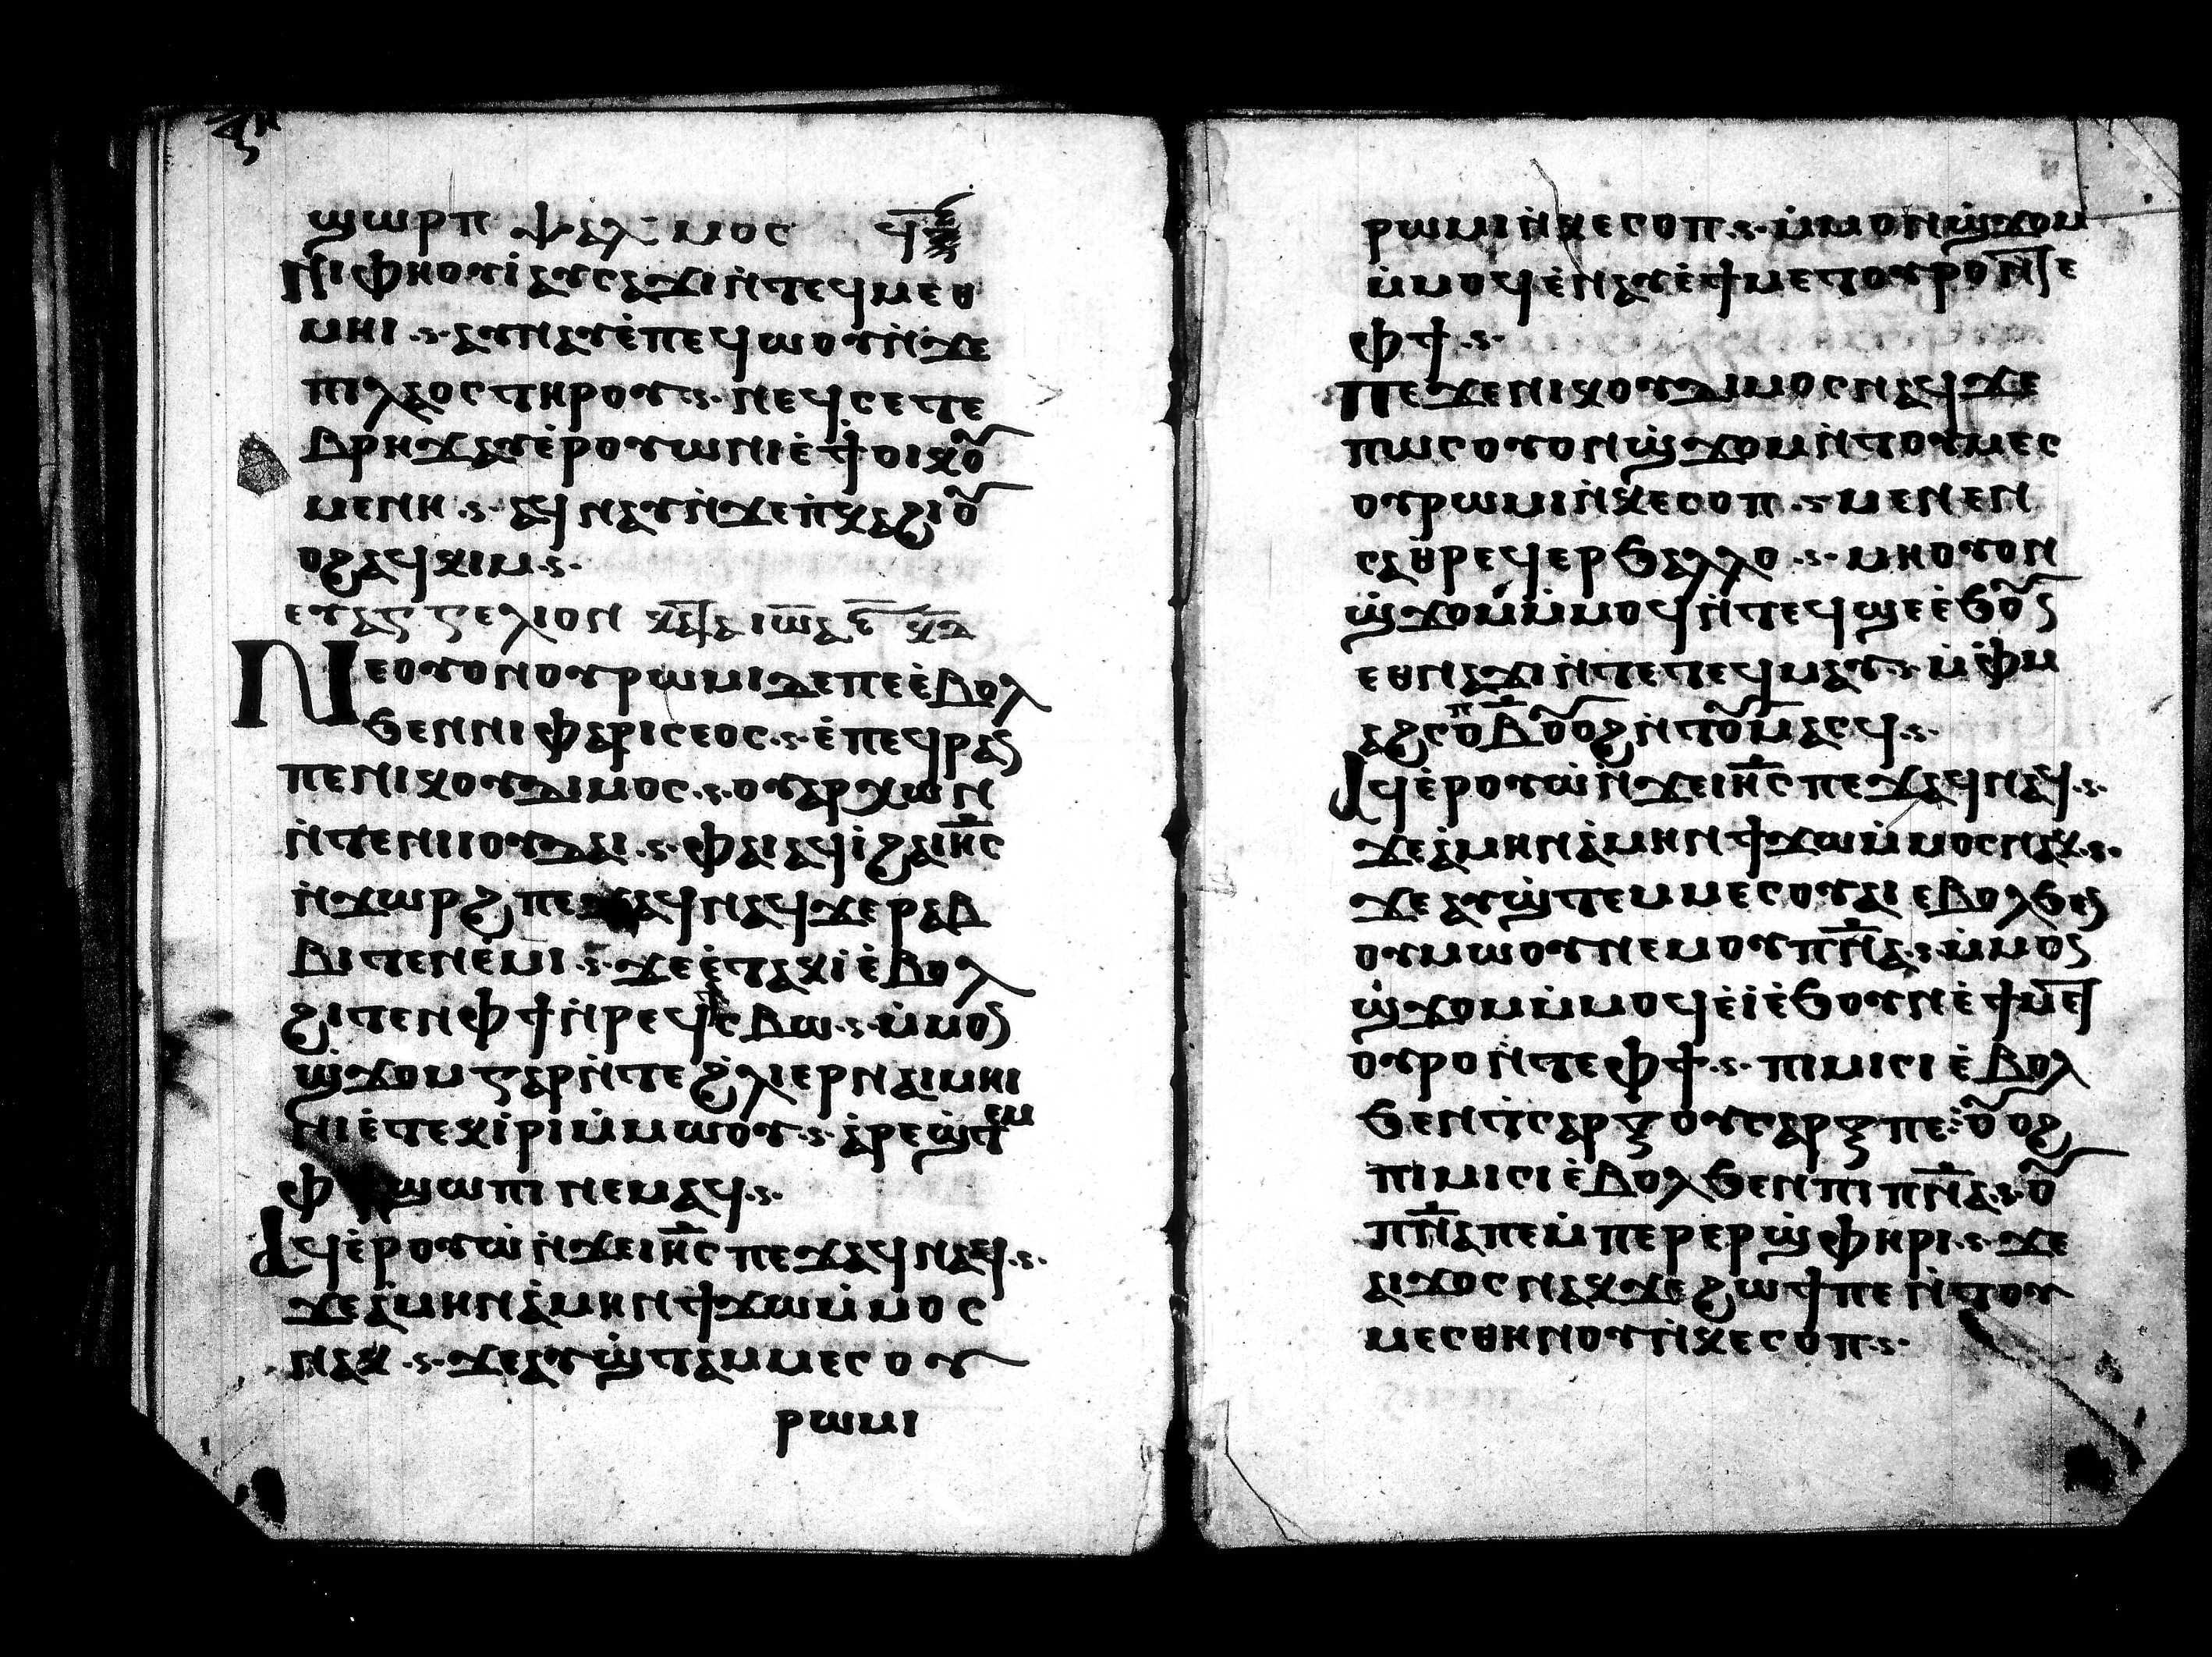 ϣⲱⲣⲡ ⲯⲁⲗⲙⲟⲥ ϥ̅
Ⲛⲓⲫⲏⲟⲩⲓ̇ ⲁⲩⲥⲁϫⲓ ⲛ̇ⲧⲉϥⲙⲉⲑ
ⲙⲏⲓ ·ⲋ· ⲁⲩⲛⲁⲩ ⲉ̇ⲡⲉϥⲱⲟⲩ ⲛ̇ϫⲉ
ⲡⲓⲗⲁⲟⲥ ⲧⲏⲣⲟⲩ ·ⲋ· ⲛⲉϥⲥⲉⲧⲉ
ⲃⲣⲏϫ ⲁⲩⲉ̇ⲣⲟⲩⲱⲓⲛⲓ ⲉ̇ϯⲟⲓⲕⲟⲩ
ⲙⲉⲛⲏ ·ⲋ· ⲁϥⲛⲁⲩ ⲛ̇ϫⲉ ⲡ̇ⲕⲁϩⲓ ⲟⲩ
ⲟϩ ⲁϥⲕⲓⲙ ·ⲋ·
ⲉⲩⲁⲅⲅⲉⲗⲓⲟⲛ ⲕⲁⲧⲁ ⲓⲱⲁ ⲅ̅ ⲕⲉ
Ⲛⲉ ⲟⲩⲟⲛ ⲟⲩⲣⲱⲙⲓ ⲇⲉ ⲡⲉ ⲉ̇ⲃⲟⲗ
ϧⲉⲛ ⲛⲓⲫⲁⲣⲓⲥⲉⲟⲥ ·ⲋ· ⲉ̇ⲡⲉϥⲣⲁⲛ
ⲡⲉ ⲛⲓⲕⲟⲩⲇⲓⲙⲟⲥ ·ⲋ· ⲟⲩⲁⲣⲭⲱⲛ
ⲛ̇ⲧⲉ ⲛⲓⲓⲟⲩⲇⲁⲓ ·ⲋ· ⲫⲁⲓ ⲁϥⲓ̇ ϩⲁ ⲓⲏ̅ⲥ
ⲛ̇ϫⲱⲣϩ ⲡⲉϫⲁϥ ⲛⲁϥ ϫⲉ ⲣⲁⲃ
ⲃⲓ ⲧⲉⲛⲉ̇ⲙⲓ ·ⲋ· ϫⲉ ⲉ̇ⲧⲁⲕⲓ̇ ⲉ̇ⲃⲟⲗ
ϩⲓⲧⲉⲛ ⲫϯ ⲛ̇ⲣⲉϥϯⲥⲃⲱ ·ⲋ· ⲙ̇ⲙⲟⲛ
ϣ̇ϫⲟⲙ ⲅⲁⲣ ⲛ̇ⲧⲉ ϩ̇ⲗⲓ ⲉⲣ ⲛⲁⲓⲙⲏⲓ
ⲛⲓ ⲉ̇ⲧⲉⲕⲓ̇ⲣⲓ ⲙ̇ⲙⲱⲟⲩ ·ⲋ· ⲁ̇ⲣⲉϣ̇ⲧⲉⲙ
ⲫϯ ϣⲱⲡⲓ ⲛⲉⲙⲁϥ ·ⲋ·
Ⲁϥⲉ̇ⲣⲟⲩⲱ̇ ⲛ̇ϫⲉ ⲓⲏ̅ⲥ ⲡⲉϫⲁϥ ⲛⲁϥ ·ⲋ·
ϫⲉ ⲁ̇ⲙⲏⲛ ⲁ̇ⲙⲏⲛ ϯϫⲱ ⲙ̇ⲙⲟⲥ
ⲛⲁⲕ ·ⲋ· ϫⲉ ⲁⲩϣ̇ⲧⲁⲙⲙⲉⲥ ⲟⲩ
ⲣⲱⲙⲓ
ⲣⲱⲙⲓ ⲛ̇ⲕⲉⲥⲟⲡ ·ⲋ· ⲙ̇ⲙⲟⲛ ϣ̇ϫⲟⲙ
ⲙ̇ⲙⲟϥ ⲉ̇ⲛⲁⲩ ⲉ̇ϯⲙⲉⲧⲟⲩⲣⲟ ⲛⲧⲉ
ⲫϯ ·ⲋ·
Ⲡⲉϫⲉ ⲛⲓⲕⲟⲩⲇⲓⲙⲟⲥ ⲛⲁϥ ϫⲉ
ⲡⲱⲥ ⲟⲩⲟⲛ ϣ̇ϫⲟⲙ ⲛ̇ⲧⲟⲩⲙⲉⲥ
ⲟⲩⲣⲱⲙⲓ ⲛ̇ⲕⲉⲥⲟⲡ ·ⲋ· ⲙⲉⲛⲉⲛ
ⲥⲁ ⲑⲣⲉϥⲉⲣϧⲉⲗⲗⲟ ·ⲋ· ⲙⲏ ⲟⲩⲟⲛ
ϣ̇ϫⲟⲙ ⲙ̇ⲙⲟϥ ⲛ̇ⲧⲉϥϣⲉ ⲉ̇ϧⲟⲩⲛ
ⲉⲑⲛⲉϫⲓ ⲛ̇ⲧⲉ ⲧⲉϥⲙⲁⲩ ·ⲋ· ⲙ̇ⲫⲙ
ⲁϩⲥⲟⲡⲃ̅ ⲟⲩⲟϩ ⲛ̇ⲧⲟⲩⲙⲁⲥϥ ·ⲋ·
Ⲁϥⲉ̇ⲣⲟⲩⲱ̇ ⲛ̇ϫⲉ ⲓⲏ̅ⲥ ⲡⲉϫⲁϥ ⲛⲁϥ ·ⲋ·
ϫⲉ ⲁ̇ⲙⲏⲛ ⲁ̇ⲙⲏⲛ ϯϫⲱ ⲙ̇ⲙⲟⲥ ⲛⲁⲕ ·ⲋ·
ϫⲉ ⲁⲩϣ̇ⲧⲉⲙⲙⲉⲥ ⲟⲩⲁⲓ ⲉⲃⲟⲗϧⲉⲛ
ⲟⲩⲙⲱⲟⲩ ⲛⲉⲙ ⲟⲩⲡⲛ̅ⲁ ·ⲋ· ⲙ̇ⲙⲟⲛ
ϣ̇ϫⲟⲙ ⲙ̇ⲙⲟϥ ⲉ̇ⲓ̇ ⲉ̇ϧⲟⲩⲛ ⲉ̇ϯⲙⲉⲧ
ⲟⲩⲣⲟ ⲛ̇ⲧⲉ ⲫϯ ·ⲋ· ⲡⲓⲙⲓⲥⲓ ⲉ̇ⲃⲟⲗ
ϧⲉⲛ ⲧ̇ⲥⲁⲣⲝ ⲟⲩⲥⲁⲣⲝ ⲡⲉ ⲟⲩⲟϩ
ⲡⲓⲙⲓⲥⲓ ⲉ̇ⲃⲟⲗϧⲉⲛ ⲡⲓⲡⲛ̅ⲁ ·ⲋ· ⲟⲩ
ⲡⲛ̅ⲁ ⲡⲉ ⲙ̇ⲡⲉⲣⲉⲣϣ̇ⲫⲏⲣⲓ ·ⲋ· ϫⲉ
ⲁⲓϫⲟⲥ ⲛⲁⲕ ϫⲉ ϩⲱϯ ⲡⲉ ⲛ̇ⲧⲟⲩ
ⲙⲉⲥ ⲑⲏⲛⲟⲩ ⲛ̇ⲕⲉⲥⲟⲡ ·ⲋ·